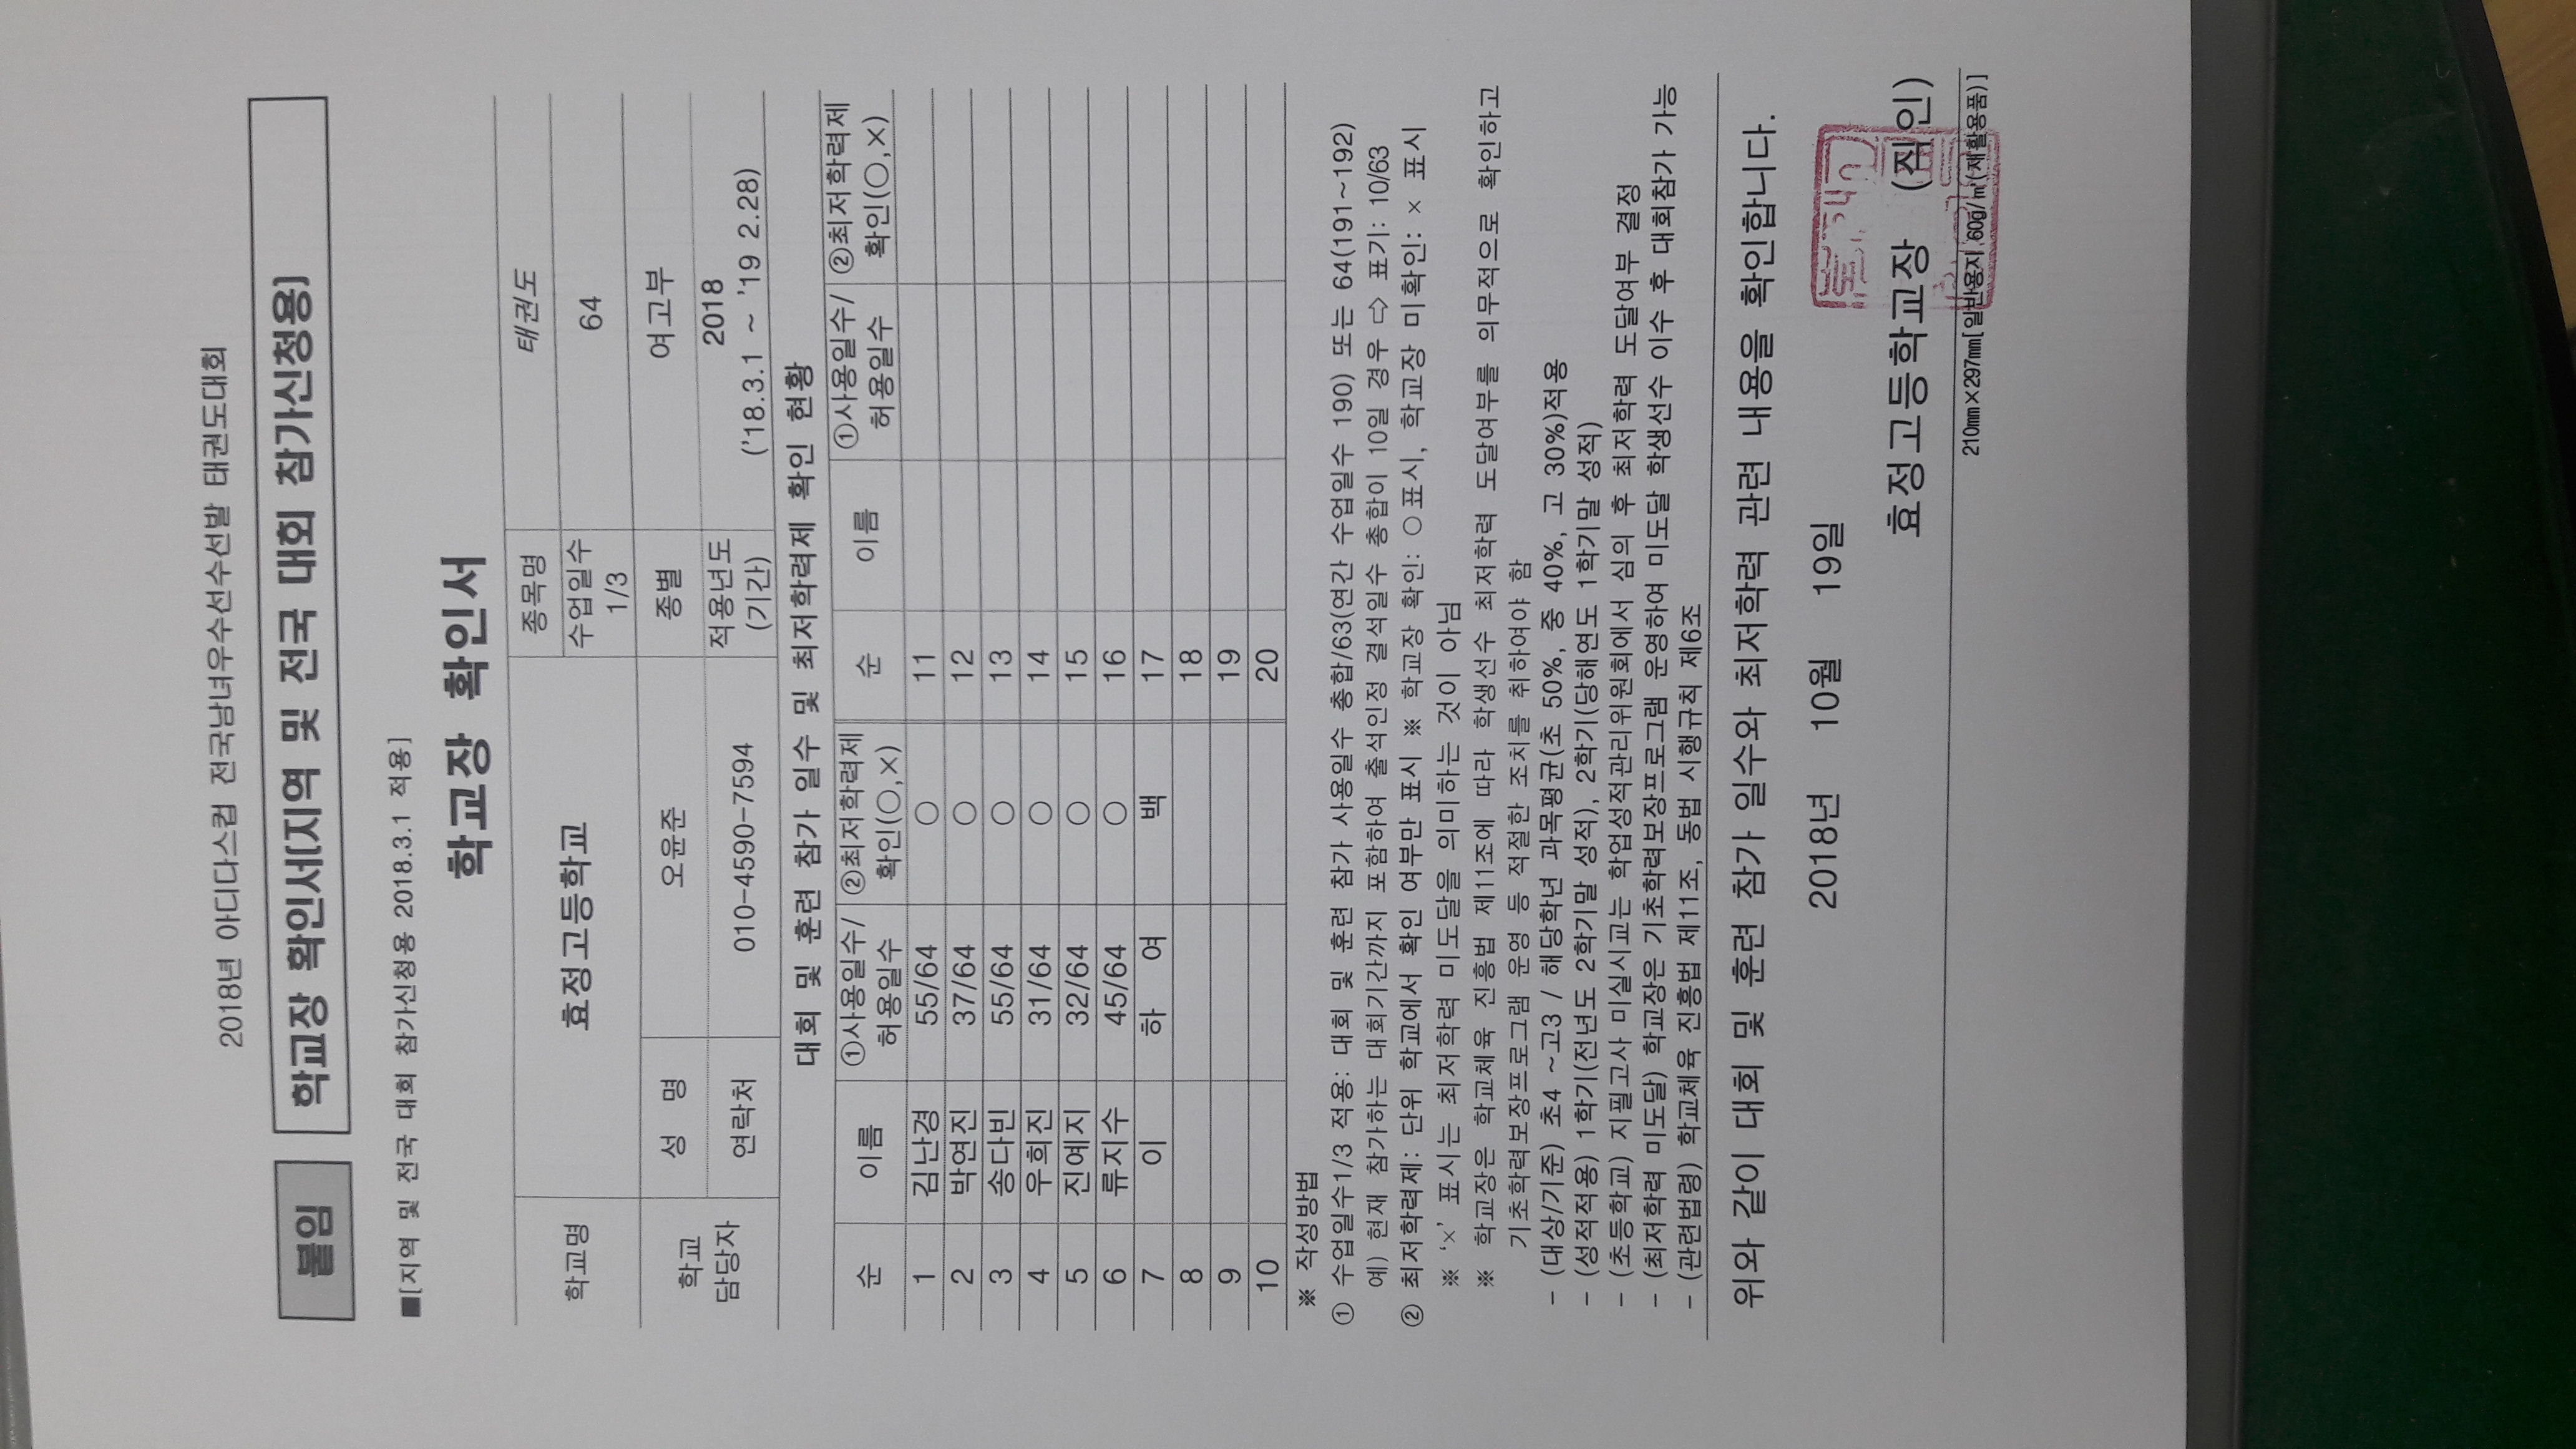 2018년 아디다스컵 전국남녀우수선수선발 태권도대회
붙임 학교장 확인서(지역 및 전국 대회 참가신청용)
■[지역 및 전국 대회 참가신청용 2018.3.1 적용]
학교장 확인서
학교명 효정고등학교 종목명 태권도
수업일수 1/3 64
학교 담당자 성 명 오윤준 종별 여고부
연락처 010-4590-7594 적용년도 (기간) 2018 ('18.3.1 ~ '19 2.28)
대회 및 훈련 참가 일수 및 최저학력제 확인 현황
순 이름 ①사용일수/허용일수 ②최저학력제 확인(○,×) 순 이름 ①사용일수/허용일수 ②최저학력제 확인(○,×)
1 김난경 55/64 ○ 11
2 박연진 37/64 ○ 12
3 송다빈 55/64 ○ 13
4 우희진 31/64 ○ 14
5 진예지 32/64 ○ 15
6 류지수 45/64 ○ 16
7 이 하 여 백 17
8 18
9 19
10 20
※ 작성방법
① 수업일수1/3 적용: 대회 및 훈련 참가 사용일수 총합/63(연간 수업일수 190) 또는 64(191~192)
예) 현재 참가하는 대회기간까지 포함하여 출석인정 결석일수 총합이 10일 경우 ⇨ 표기: 10/63
② 최저학력제: 단위 학교에서 확인 여부만 표시 ※ 학교장 확인: ○표시, 학교장 미확인: × 표시
※ '×' 표시는 최저학력 미도달을 의미하는 것이 아님
※ 학교장은 학교체육 진흥법 제11조에 따라 학생선수 최저학력 도달여부를 의무적으로 확인하고
기초학력보장프로그램 운영 등 적절한 조치를 취하여야 함
- (대상/기준) 초4 ~고3 / 해당학년 과목평균(초 50%, 중 40%, 고 30%)적용
- (성적적용) 1학기(전년도 2학기말 성적), 2학기(당해연도 1학기말 성적)
- (초등학교) 지필고사 미실시교는 학업성적관리위원회에서 심의 후 최저학력 도달여부 결정
- (최저학력 미도달) 학교장은 기초학력보장프로그램 운영하여 미도달 학생선수 이수 후 대회참가 가능
- (관련법령) 학교체육 진흥법 제11조, 동법 시행규칙 제6조
위와 같이 대회 및 훈련 참가 일수와 최저학력 관련 내용을 확인합니다.
2018년 10월 19일
효정고등학교장 (직인)
210㎜×297㎜[일반용지 60g/㎡(재활용품)]